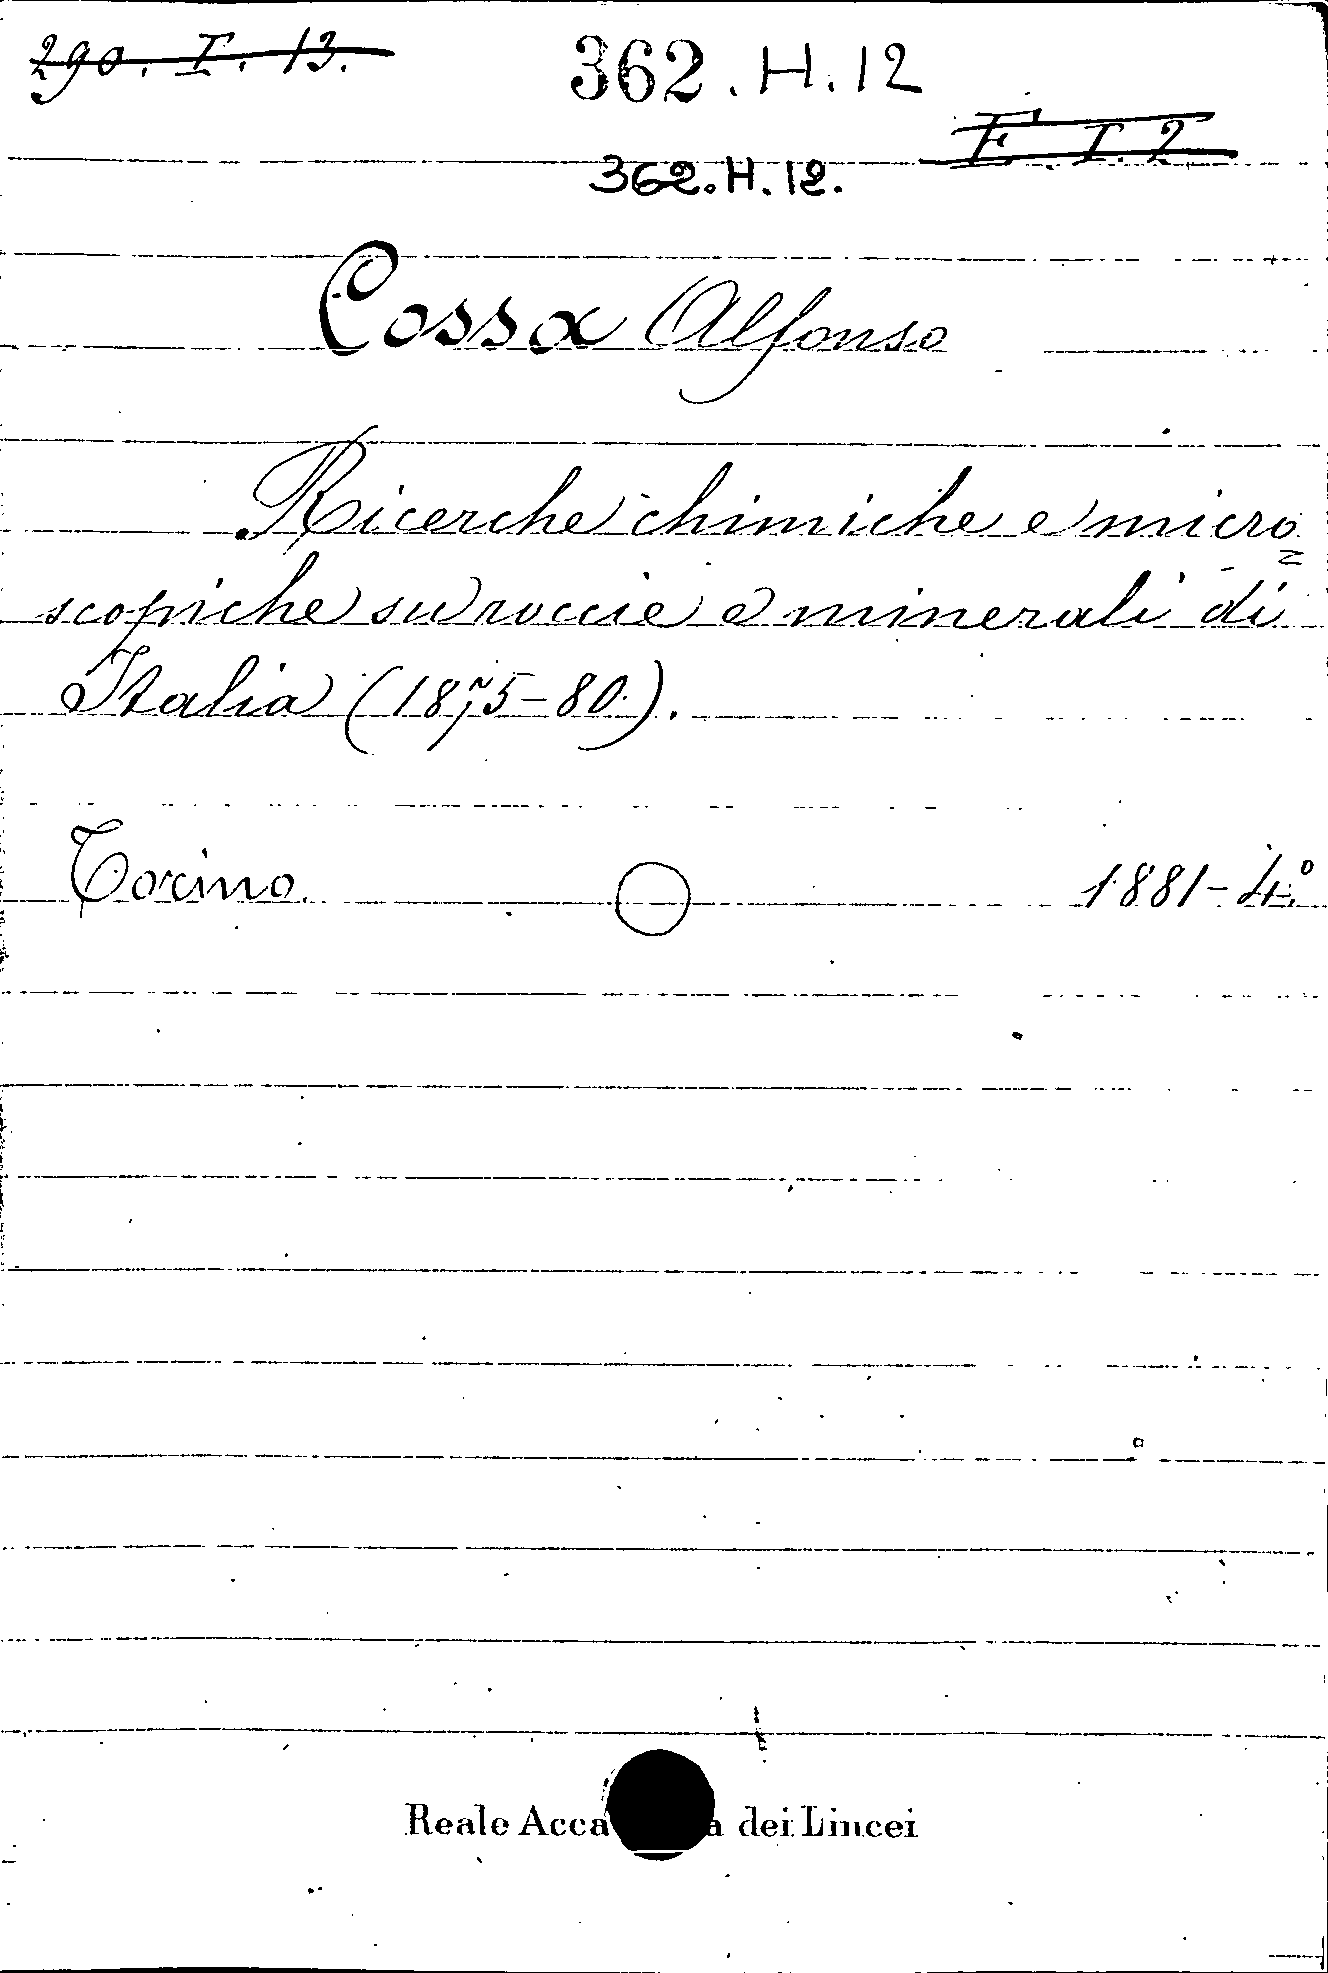 290. I. 13.
362.H.12
E. I. 2
362.H.12.
Cossa Alfonso
Ricerche chimiche e micro=
scopiche su roccie e minerali di
Italia (1875-80).
Torino 1881-4.°
Reale Acca a dei Lincei